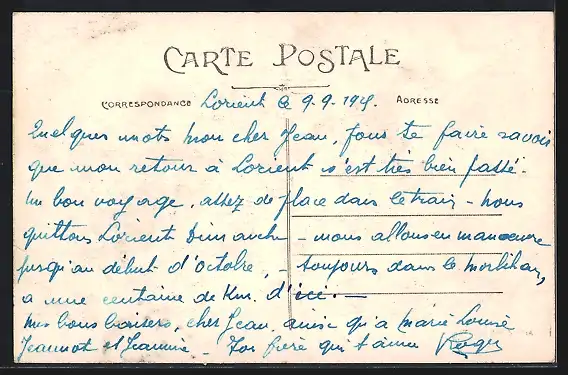 CARTE POSTALE
CORRESPONDANCE Lorient le 9.9.19 ADRESSE
Quelques mots mon cher Jean, pour te faire savoir
que mon retour à Lorient s'est très bien passé.
un bon voyage, assez de place dans le train - nous
quittons Lorient Dimanche - nous allons en manoeuvre
jusqu'au début d'octobre, - toujours dans le Morbihan,
a une centaine de Km. d'ici. —
Mes bons baisers, cher Jean, ainsi qu'a Marie Louise
Jeannot et Jeannine - Ton frère qui t'aime Roger